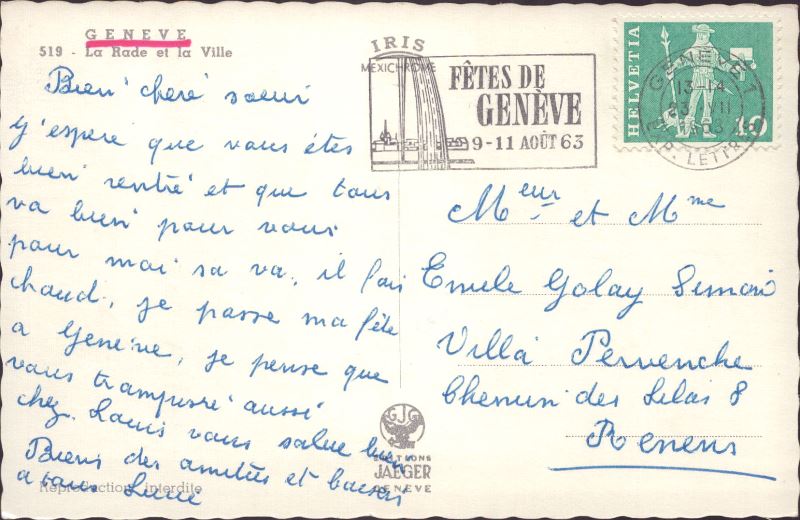 GENEVE
519 - La Rade et la Ville
IRIS
MEXICHROME
FÊTES DE
GENÈVE
9-11 AOÛT 63
HELVETIA
10
GENÈVE 1
13-14
LETTR
Bien cheré soeur
j'espere que vous étes
bien rentré et que tous
va bien pour vous
pour moi sa va, il fais
chaud, je passe ma fête
a Genève, je pense que
vous
aussi
chez Louis vous salue bien
Biens des amitiés et baisers
a tous Lucie
Meur et Mme
Emile Golay Simon
Villa Pervenche
Chemin des Lilas 8
Renens
GJG
EDITIONS
JAEGER
GENEVE
Reproduction interdite